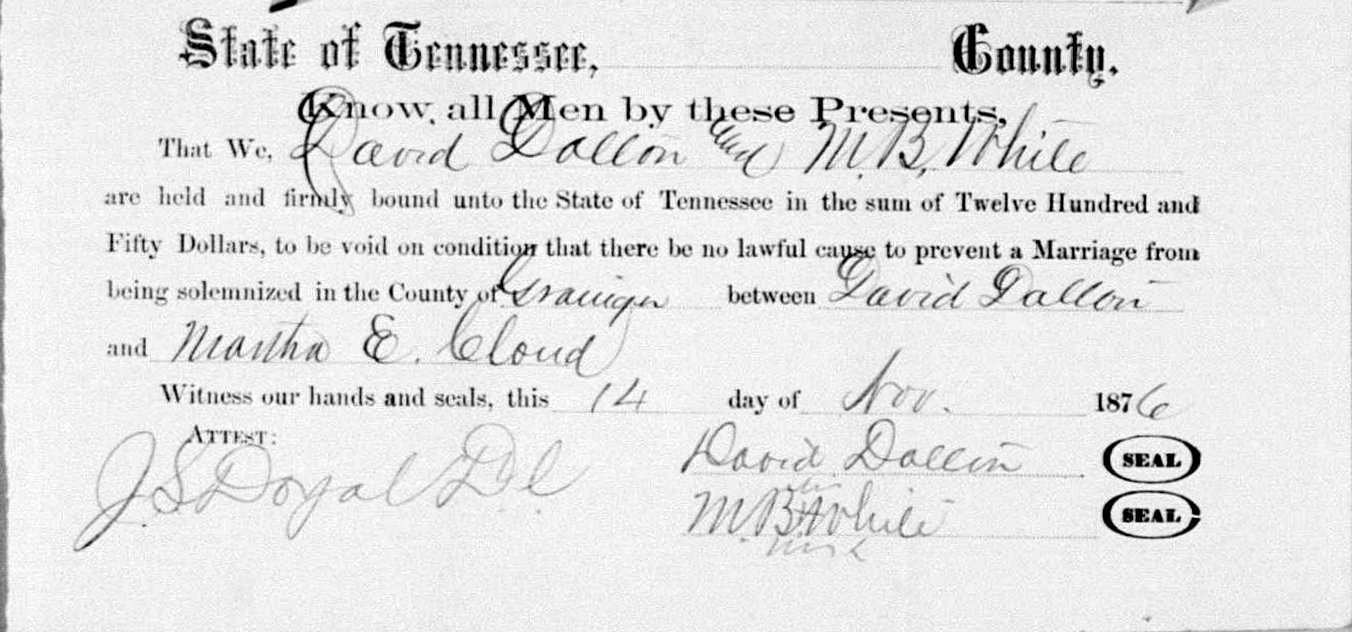 State of Tennessee, County.
Know all Men by these Presents,
That We, David Dalton and M. B. White
are held and firmly bound unto the State of Tennessee in the sum of Twelve Hundred and
Fifty Dollars, to be void on condition that there be no lawful cause to prevent a Marriage from
being solemnized in the County of Grainger between David Dalton
and Martha E. Cloud
Witness our hands and seals, this 14 day of Nov. 1876
ATTEST:
David Dalton SEAL
J. S. Doyal D.C.
his
M. B. + White SEAL
mark